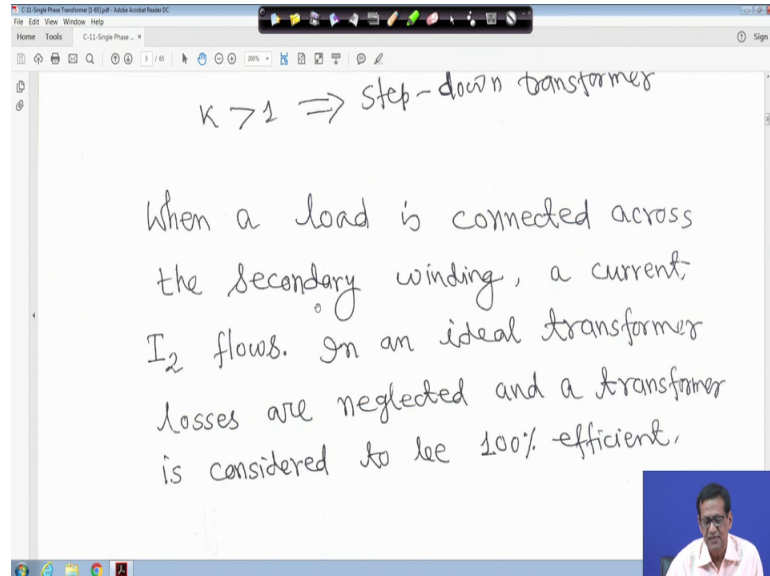 C-11-Single Phase Transformer [1-65].pdf - Adobe Acrobat Reader DC
File Edit View Window Help
Home Tools C-11-Single Phase ... × Sign
5 / 65 200%
K > 1 ⟹ Step-down transformer
When a load is connected across
the secondary winding, a current,
I₂ flows. In an ideal transformer
losses are neglected and a transformer
is considered to be 100% efficient.